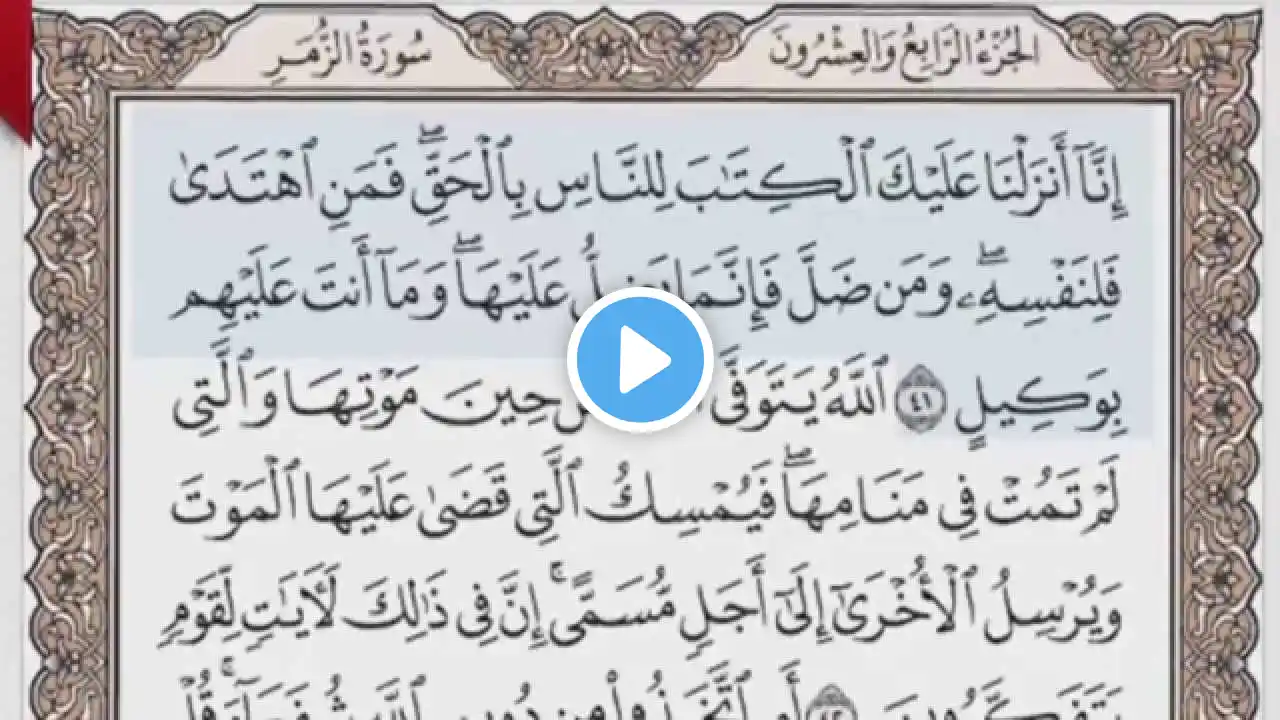 الجُزْءُ الرَّابِعُ وَالعِشْرُونَ
سُورَةُ الزُّمَرِ
إِنَّآ أَنزَلْنَا عَلَيْكَ ٱلْكِتَٰبَ لِلنَّاسِ بِٱلْحَقِّۖ فَمَنِ ٱهْتَدَىٰ
فَلِنَفْسِهِۦۖ وَمَن ضَلَّ فَإِنَّمَا عَلَيْهَاۖ وَمَآ أَنتَ عَلَيْهِم
بِوَكِيلٍ ٤١ ٱللَّهُ يَتَوَفَّى حِينَ مَوْتِهَا وَٱلَّتِى
لَمْ تَمُتْ فِى مَنَامِهَاۖ فَيُمْسِكُ ٱلَّتِى قَضَىٰ عَلَيْهَا ٱلْمَوْتَ
وَيُرْسِلُ ٱلْأُخْرَىٰٓ إِلَىٰٓ أَجَلٍ مُّسَمًّىۚ إِنَّ فِى ذَٰلِكَ لَءَايَٰتٍ لِّقَوْمٍ